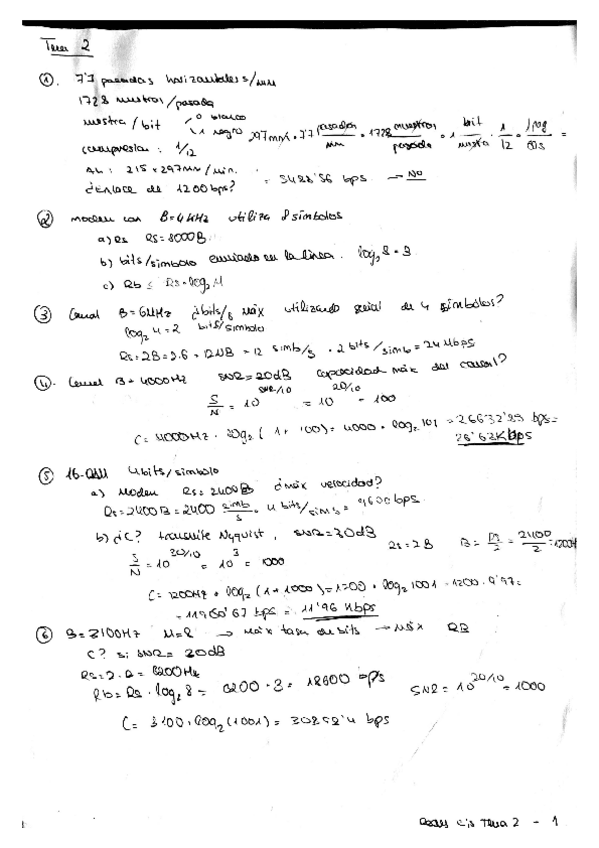 Tema 2
① 7'7 pasadas horizontales/mm
1728 muestras/pasada
muestra/bit 0 blanco
1 negro 297mm/ · 7'7 pasadas/mm · 1728 muestras/pasada · 1 bit/muestra · 1/12 · 1pag/60s =
compresion: 1/12
A4: 215 x 297mm/min.
¿enlace de 1200bps? = 5428'56 bps. → NO
② modem con B=4kHz utiliza 8 símbolos
a) Rs Rs=8000B
b) bits/símbolo enviado en la línea. log₂ 8 = 3
c) Rb ≤ Rs·log₂ M
③ Canal B=6MHz ¿bits/s máx utilizando señal de 4 símbolos?
log₂ 4=2 bits/símbolo
Rs=2B=2·6=12MB=12 simb/s · 2 bits/simb=24Mbps
④ Canal B=4000Hz SNR=20dB capacidad máx del canal?
S/N = 10^SNR/10 = 10^20/10 = 100
C=4000Hz · log₂(1+100)=4000·log₂101=26632'99 bps=
26'63Kbps
⑤ 16-QAM 4bits/símbolo
a) Modem Rs=2400B ¿máx velocidad?
Rs=2400B=2400 simb/s · 4 bits/simb=9600bps
b) ¿C? transmite Nyquist, SNR=30dB Rs=2B B=Rs/2=2400/2=1200Hz
S/N=10^30/10=10³=1000
C=1200Hz·log₂(1+1000)=1200·log₂1001=1200·9'97=
=11960'67 bps=11'96 Kbps
⑥ B=3100Hz M=8 → máx tasa de bits → máx RB
C? si SNR=30dB
Rs=2·B=6200Hz
Rb=Rs·log₂8=6200·3=18600 bps SNR=10^30/10=1000
C=3100·log₂(1001)=30898'4 bps
Redes Ejs Tema 2 - 1